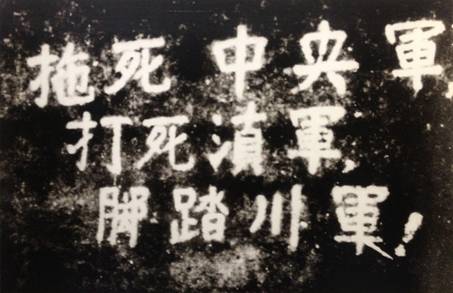 拖死中央軍,
打死滇軍,
脚踏川軍!